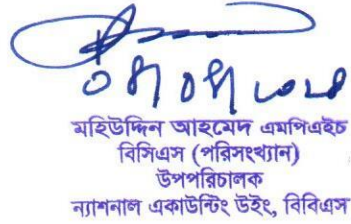 মহিউদ্দিন আহমেদ এমপিএইচ
বিসিএস (পরিসংখ্যান)
উপপরিচালক
ন্যাশনাল একাউন্টিং উইং, বিবিএস